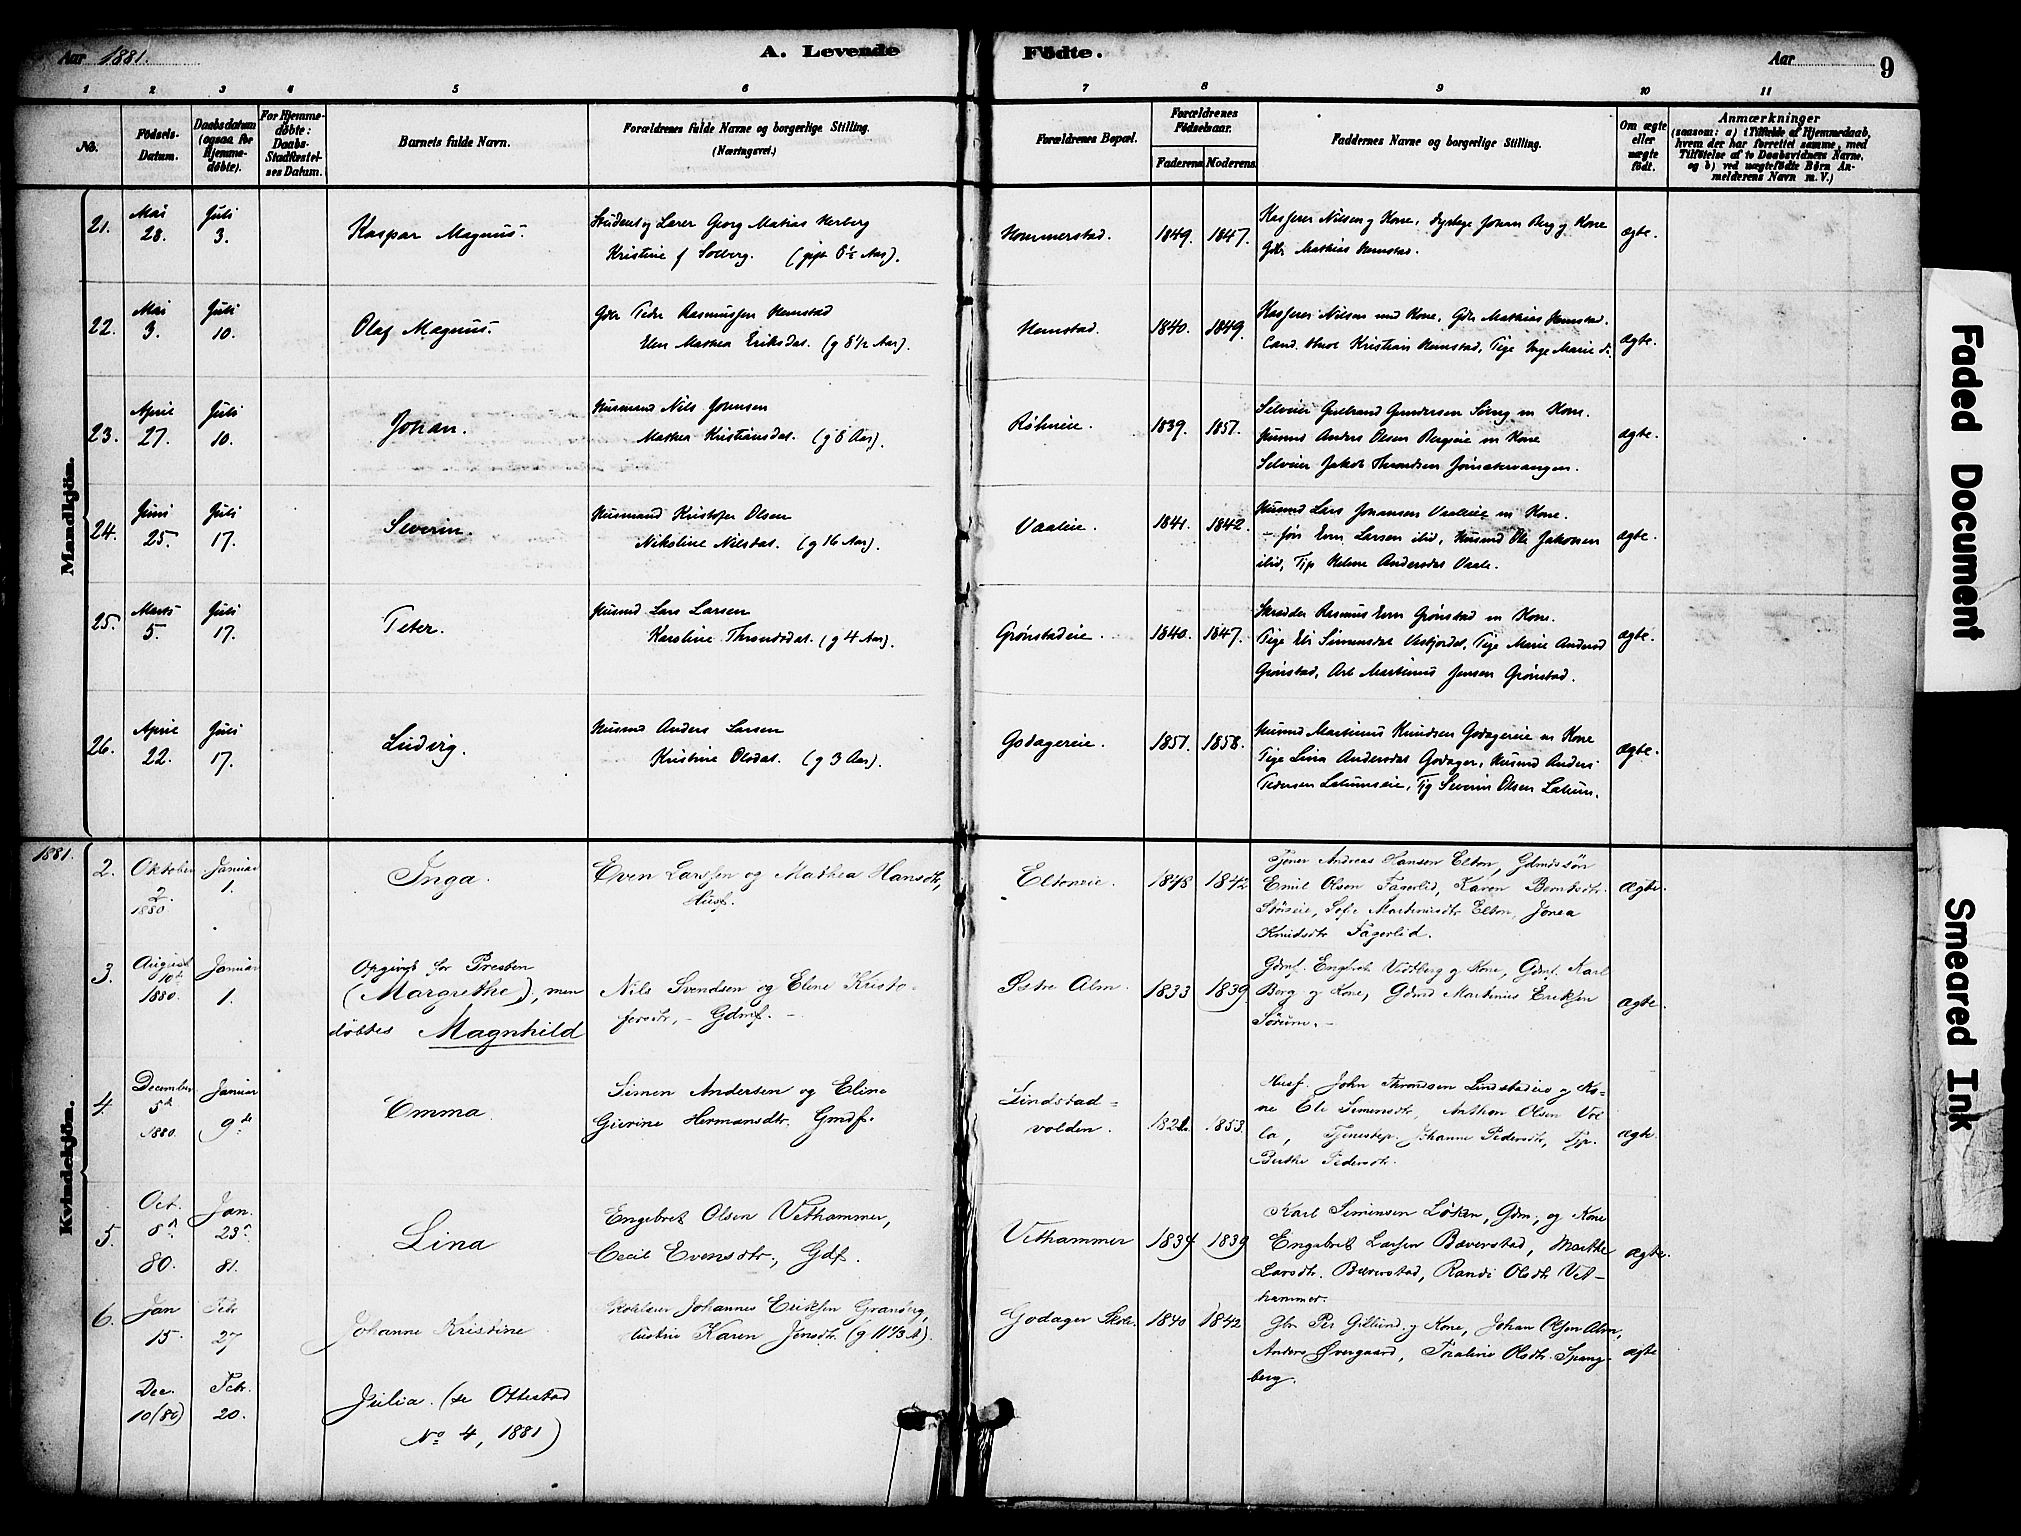 Aar 1881.
A. Levende Födte.
Aar
9
1 2 3 4 5 6 7 8 9 10 11
No.
Födsels-Datum.
Daabsdatum (ogsaa for Hjemmedöbte).
For Hjemmedöbte: Daabs-Stadfæstelses Datum.
Barnets fulde Navn.
Forældrenes fulde Navne og borgerlige Stilling.
(Næringsvei.)
Forældrenes Bopæl.
Forældrenes Födselsaar.
Faderens Moderens
Faddernes Navne og borgerlige Stilling.
Om ægte eller uægte födt.
Anmærkninger
(saasom: a) i Tilfælde af Hjemmedaab,
hvem der har forrettet samme, med
Tilföielse af to Daabsvidners Navne,
og b) ved uægtefödte Börn Anmelderens Navn m. V.)
Mandkjön.
21. Mai 28. Juli 3. Kaspar Magnus.
Student og Lærer Georg Matias Herberg
Kristine f Solberg. (gift 6½ Aar).
Hommerstad. 1849. 1847.
Kasserer Nilsen og Kone, Johan Berg og Kone
Gdr Mathias Hemstad.
ægte.
22. Mai 3. Juli 10. Olaf Magnus.
Gdr Peder Rasmussen Hemstad
Elen Mathea Eriksdat. (g 8½ Aar).
Hemstad. 1840. 1849.
Kasserer Nilsen med Kone, Gdr Mathias Hemstad.
Cand. Kristian Hemstad, Pige Inge Marie d.
ægte.
23. April 27. Juli 10. Johan.
Husmand Nils Jörensen
Mathea Kristiansdat. (g 8 Aar).
1839. 1857.
Selveier Gulbrand Gundersen m Kone.
Husmd Anders Olsen Bergseie m Kone
Selveier Jakob Throndsen
ægte.
24. Juni 25. Juli 17. Severin.
Husmand Kristofer Olsen
Nikoline Nilsdat. (g 16 Aar).
Vaaleie. 1841. 1842.
Husmd Lars Johansen Vaaleie m Kone.
Even Larsen ibid, Husmd Ole Jakobsen
ibid, Pige Helene Andersdat Vaale.
ægte.
25. Marts 5. Juli 17. Peter.
Husmd Lars Larsen
Karoline Throndsdat. (g 4 Aar).
Grönstadeie. 1840. 1847.
Skrædder Rasmus Even Grönstad m Kone.
Pige Eli Simensdat Vestjordet, Pige Marie Andersd
Grönstad, Arb Martinus Jensen Grönstad.
ægte.
26. April 22. Juli 17. Ludvig.
Husmd Anders Larsen
Kristine Olsdat. (g 3 Aar).
Godagereie. 1857. 1858.
Husmd Martinus Knudsen Godagereie m Kone
Pige Lina Andersdat Godager, Husmd Anders
Pedersen Lalumseie, Pig Severin Olsen Lalum.
ægte.
1881.
Kvindekjön.
2. Oktober 2 1880. Januar 1. Inga.
Even Larssen og Mathea Hansdtr,
Husf.
Eltoneie. 1848 1842
Tjener Andreas Hansen Elton, Gdmdssön
Emil Olsen Fagerlid, Karen Berntsdtr
Störseie, Sofie Martinusdtr Elton, Jonea
Knudsdtr Fagerlid.
ægte.
3. August 10d 1880. Januar 1.
Opgives for Presten
(Margrethe), men
döbtes Magnhild
Nils Svendsen og Eline Kristo-
fersdtr, - Gdmf. -
Östre Alm. 1833 1839
Gdmf. Engebret Vidtberg og Kone, Gdmf. Karl
Berg og Kone, Gdmd Martinius Eriksen
Sörum. -
ægte.
4. December 5d 1880. Januar 9de Emma.
Simen Andersen og Eline
Gurine Hermansdtr. Gmdf.
Lindstad=
volden. 1853.
Husf. John Throndsen Lindstadeie og Ko-
ne Eli Simensdtr, Anthon Olsen Vol
la, Tjenestep. Johanne Pedersdtr, Tjp.
Berthe Pedersdtr.
ægte.
5. Oct. 8d 80. Jan. 23d 81. Lina
Engebret Olsen Vethammer,
Cecil Evensdtr, Gdf.
Vethammer 1834 1839
Karl Simensen Löken, Gdm, og Kone
Engebret Larsen Bæverstad, Marthe
Larsdtr. Bæverstad, Randi Olsdtr Vet-
hammer.
ægte.
6. Jan 15. Febr 27 Johanne Kristine
Johannes Eriksen Granberg,
Hustru Karen Jensdtr. (g 11⅓ A).
Godager Skole. 1840 1842
Gbr Per Gillund og Kone, Johan Olsen Alm,
Anders Övergaard, Oraline Olsdtr. Spang-
berg.
ægte
Dec. 10(80) Febr. 20.
Julia. (se Ottestad
No 4, 1881)
Faded Document
Smeared Ink